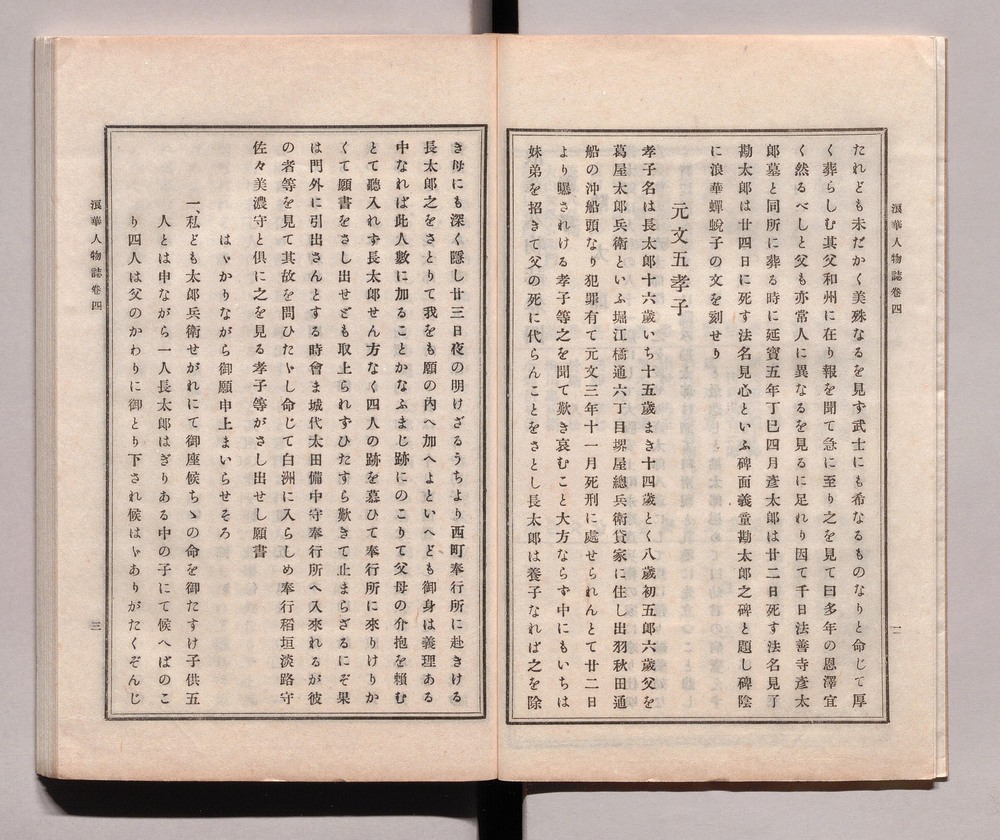 浪華人物誌卷四
二
たれども未だかく美殊なるを見ず武士にも希なるものなりと命じて厚
く葬らしむ其父和州に在り報を聞て急に至り之を見て曰多年の恩澤宜
く然るべしと父も亦常人に異なるを見るに足れり因て千日法善寺彥太
郎墓と同所に葬る時に延寶五年丁巳四月彥太郎は廿二日死す法名見了
勘太郎は廿四日に死す法名見心といふ碑面義童勘太郎之碑と題し碑陰
に浪華蟬蛻子の文を刻せり
元文五孝子
孝子名は長太郎十六歲いち十五歲まき十四歲とく八歲初五郎六歲父を
葛屋太郎兵衞といふ堀江橋通六丁目堺屋總兵衞貸家に住し出羽秋田通
船の沖船頭なり犯罪有て元文三年十一月死刑に處せられんとて廿二日
より曝されける孝子等之を聞て歎き哀むこと大方ならず中にもいちは
妹弟を招きて父の死に代らんことをさとし長太郎は養子なれば之を除
き母にも深く隱し廿三日夜の明けざるうちより西町奉行所に赴きける
長太郎之をさとりて我をも願の内へ加へよといへども御身は義理ある
中なれば此人數に加ることかなふまじ跡にのこりて父母の介抱を賴む
とて聽入れず長太郎せん方なく四人の跡を慕ひて奉行所に來りけりか
くて願書をさし出せども取上られずひたすら歎きて止まらざるにぞ果
は門外に引出さんとする時會ま城代太田備中守奉行所へ入來れるが彼
の者等を見て其故を問ひたゞし命じて白洲に入らしめ奉行稻垣淡路守
佐々美濃守と俱に之を見る孝子等がさし出せし願書
はゞかりながら御願申上まいらせそろ
一、私ども太郎兵衞せがれにて御座候ちゝの命を御たすけ子供五
人とは申ながら一人長太郎はぎりある中の子にて候へばのこ
り四人は父のかわりに御とり下され候はゞありがたくぞんじ
浪華人物誌卷四
三